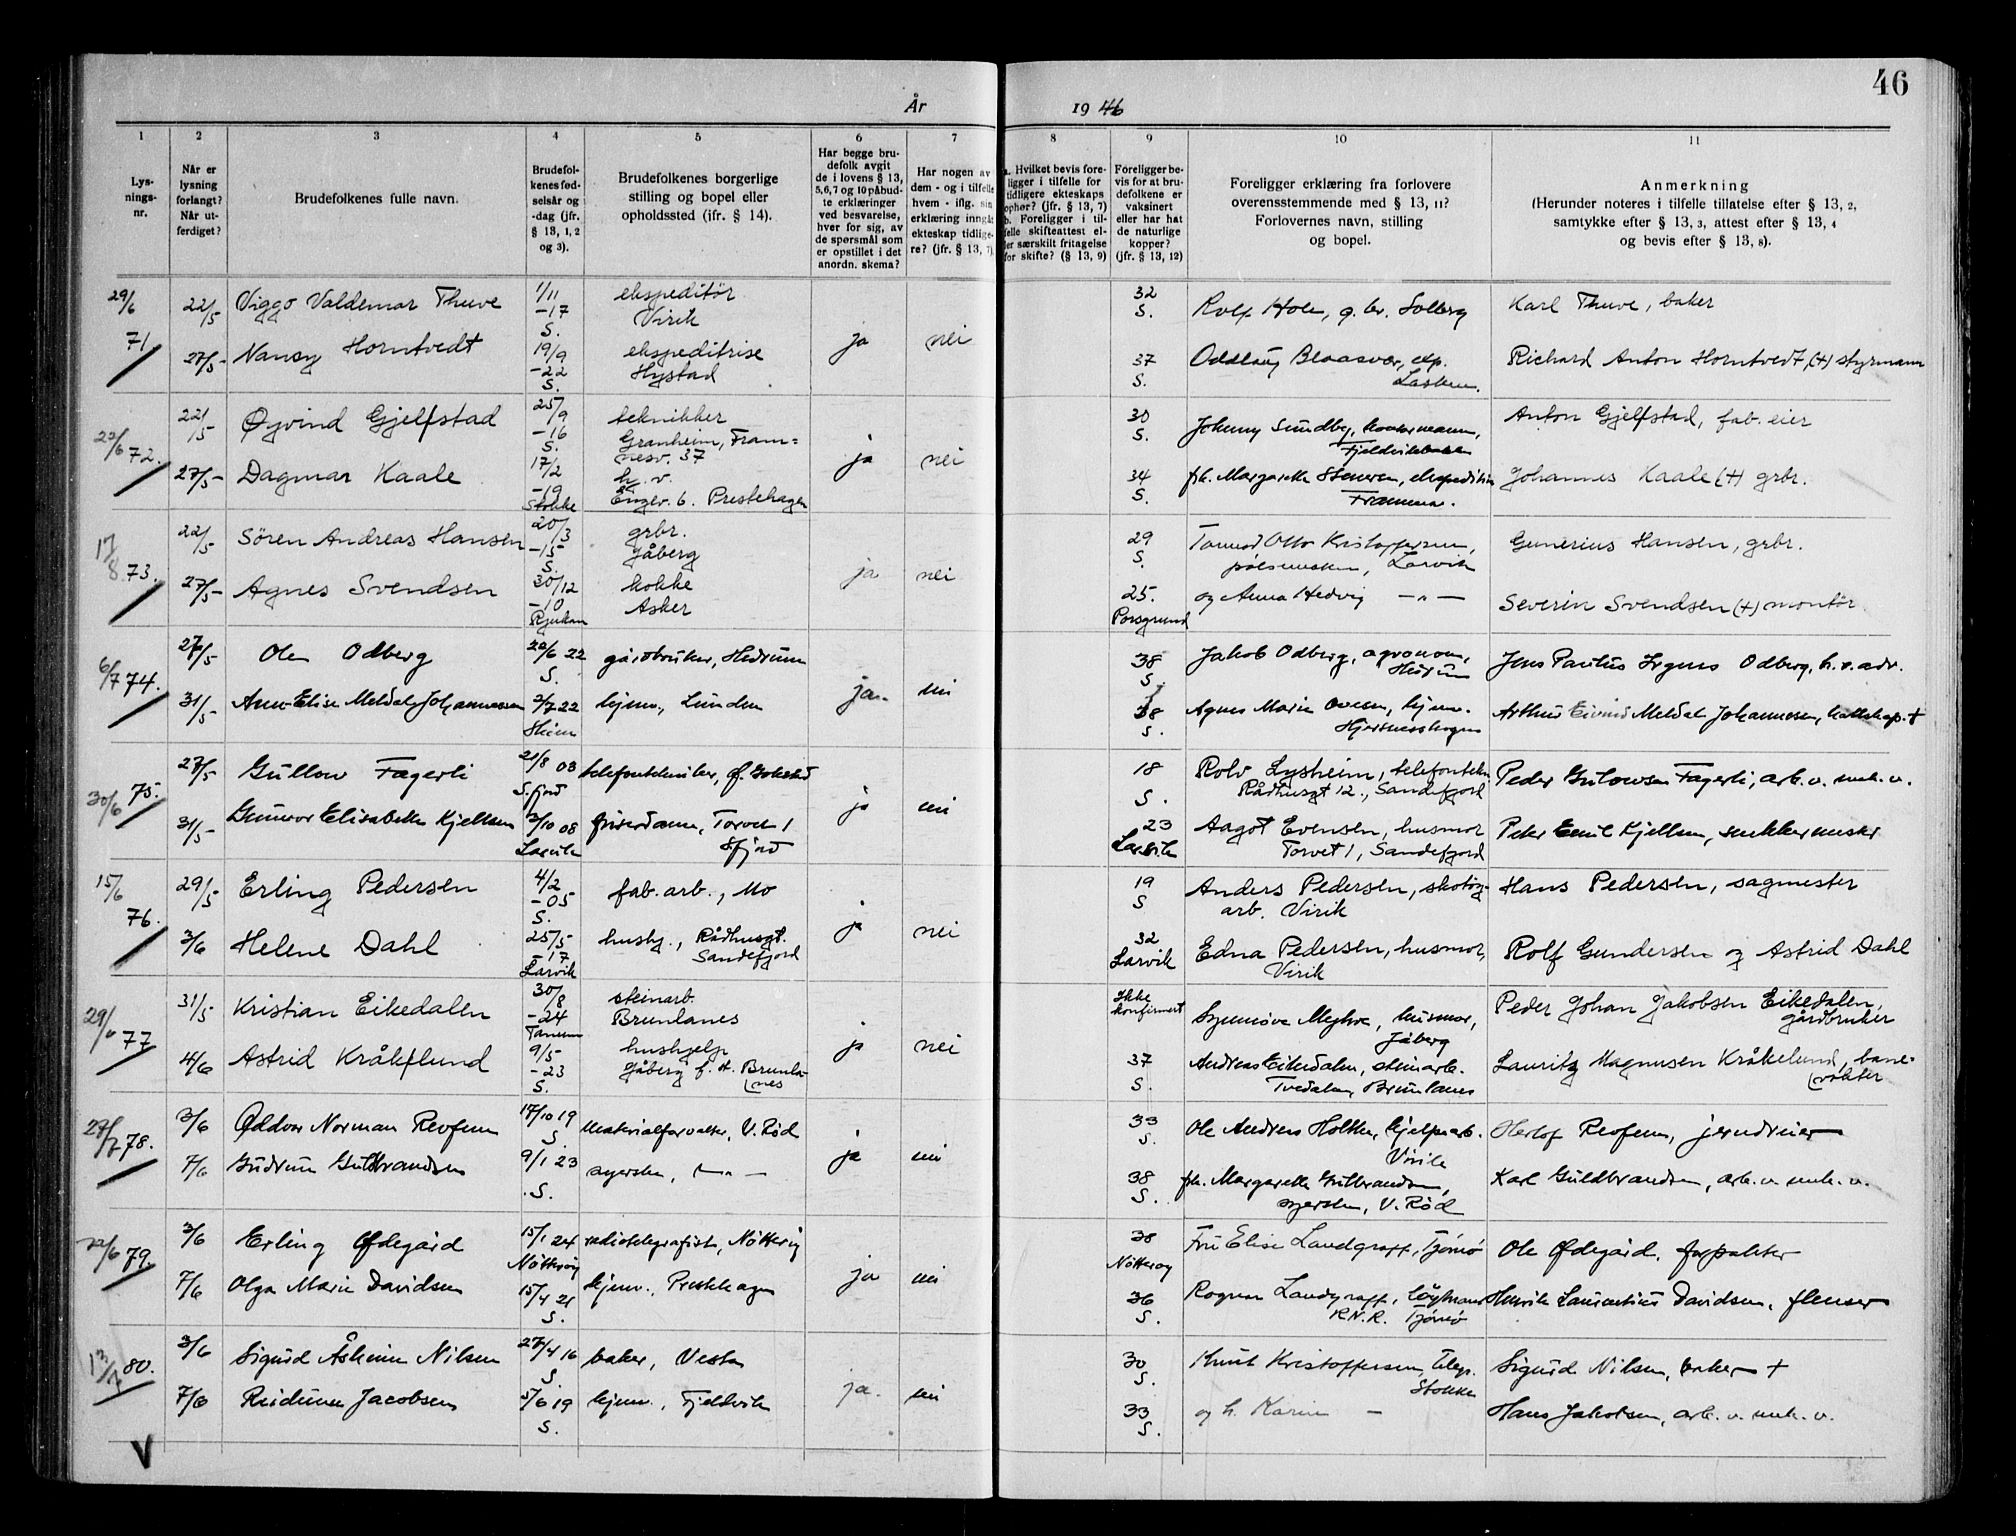 46
År 1946
1 2 3 4 5 6 7 8 9 10 11
Lys-
nings-
nr.
Når er
lysning
forlangt?
Når ut-
ferdiget?
Brudefolkenes fulle navn.
Brudefol-
kenes fød-
selsår og
-dag (jfr.
§ 13, 1, 2
og 3).
Brudefolkenes borgerlige
stilling og bopel eller
opholdssted (jfr. § 14).
Har begge bru-
defolk avgit
de i lovens § 13,
5,6,7 og 10 påbud-
te erklæringer
ved besvarelse,
hver for sig, av
de spørsmål som
er opstillet i det
anordn. skema?
Har nogen av
dem - og i tilfelle
hvem - iflg. sin
erklæring inngåt
ekteskap tidlige-
re? (jfr. § 13, 7)
a. Hvilket bevis fore-
ligger i tilfelle for
tidligere ekteskaps
ophør? (jfr. § 13, 7)
b. Foreligger i til-
felle skifteattest el-
ler særskilt fritagelse
for skifte? (§ 13, 9)
Foreligger be-
vis for at bru-
defolkene er
vaksinert
eller har hat
de naturlige
kopper?
(jfr. § 13, 12)
Foreligger erklæring fra forlovere
overensstemmende med § 13, 11?
Forlovernes navn, stilling
og bopel.
Anmerkning
(Herunder noteres i tilfelle tillatelse efter § 13, 2,
samtykke efter § 13, 3, attest efter § 13, 4
og bevis efter § 13, 8).
29/6 71 22/5 Viggo Valdemar Thuve 1/11 -17 S. ekspeditør Virik ja nei 32 S. Rolf Holm, g. br. Solberg Karl Thuve, baker
27/5 Nansy Horntvedt 19/9 -22 S. ekspeditrise Hystad 37 S. Oddlaug Blaasvær, exp. Richard Anton Horntvedt, (+) styrmann
22/6 72. 22/5 Øyvind Gjelfstad 25/9 -16 S. teknikker Granheim, Fram=
nesv. 37 ja nei 30 S. Johnny Sundby, Anton Gjelfstad, fab. eier
27/5 Dagmar Kaale 17/2 -19 Stokke h. v. Engv. 6. Prestehagen 34 S. frk. Margarethe Johannes Kaale (+) grbr.
17/8 73. 22/5 Søren Andreas Hansen 20/3 -15 S. grbr. Jåberg ja nei 29 S. Tormod Otto Kristoffersen,
pølsemaker, Larvik Gunerius Hansen, grbr.
27/5 Agnes Svendsen 30/12 -10 Rjukan kokke Asker 25. Porsgrund og Anna Hedvig — " — Severin Svendsen (+) montør
6/7 74. 27/5 Ole Odberg 20/6 22 S. gårdbruker, Hedrum ja. nei 38 S. Jakob Odberg, agronom,
Hedrum Jens Paulus Irgens Odberg, h. r. adv.
31/5 Anne-Elise Meldal Johannessen 2/7 22 Skien hjemv., Lunden 38 S. Agnes Marie Ovesen, hjemv.
Hjertnesskogen Arthur Eivind Meldal Johannesen, +
30/6 75. 27/5 Gullow Fagerli 21/8 03 S.fjord ja nei 18 S. Rolv Lysheim, telefontekn.
Rådhusgt 12., Sandefjord Peder Gulowsen Fagerli, arb. v. mek. v.
31/5 Gunvor Elisabeth Kjellsen 3/10 08 Larvik frisørdame, Torvet 1
S.fjord 23 Larvik Aagot Evensen, husmor
Torvet 1, Sandefjord Peter Emil Kjellsen,
15/6 76. 29/5 Erling Pedersen 4/2 -05 S. fab. arb., Mo ja nei 19 S Anders Pedersen, skotøy-
arb. Virik Hans Pedersen, sagmester
3/6 Helene Dahl 25/5 -17 Larvik hushj., Rådhusgt.
Sandefjord 32 Larvik Edna Pedersen, husmor,
Virik Rolf Gundersen og Astrid Dahl
29/6 77 31/5 Kristian Eikedalen 30/8 -24 Tanum steinarb. Brunlanes ja nei Ikke
konfirmert Synnøve Myhre, husmor,
Jåberg Peder Johan Jakobsen Eikedalen,
gårdbruker
4/6 Astrid Kråkelund 9/5 -23 S. hushjelp Jåberg f. t. Brunla-
nes 37 S. Andreas Eikedalen, steinarb.
Tvedalen, Brunlanes Lauritz Magnusen Kråkelund, bane-
vokter
27/7 78. 3/6 Oddvar Norman Revfem 17/10 19 S. materialforvalter, V. Rød ja nei 33 S. Ole Andreas Holtke, hjelpearb.
Virik Herlof Revfem, jerndreier
7/6 Gudrun Guldbrandsen 9/1 23 S. syerske, — " — 38 S. frk. Margarethe Gulbrandsen,
syerske, V. Rød Karl Guldbrandsen, arb. v. mek. v.
22/6 79. 3/6 Erling Ødegård 15/1 24 Nøtterøy radiotelegrafist, Nøtterøy ja nei 38 Nøtterøy Fru Elise Landgraff, Tjømø Ole Ødegård,
7/6 Olga Marie Davidsen 15/4 21 S. hjemv., Prestehagen 36 S. Ragnar Landgraff, løytnant
R.N.R. Tjømø Henrik Laurentius Davidsen, flenser
13/7 80. 3/6 Sigurd Åsheim Nilsen 27/4 16 S. baker, Vesta ja. nei 30 S. Knut Kristoffersen, telegr.
Stokke Sigurd Nilsen, baker +
7/6 Reidunn Jacobsen 5/6 19 S. hjemv., Fjeldvik 33 S. og h. Karin — Hans Jakobsen, arb. v. mek. v.
V